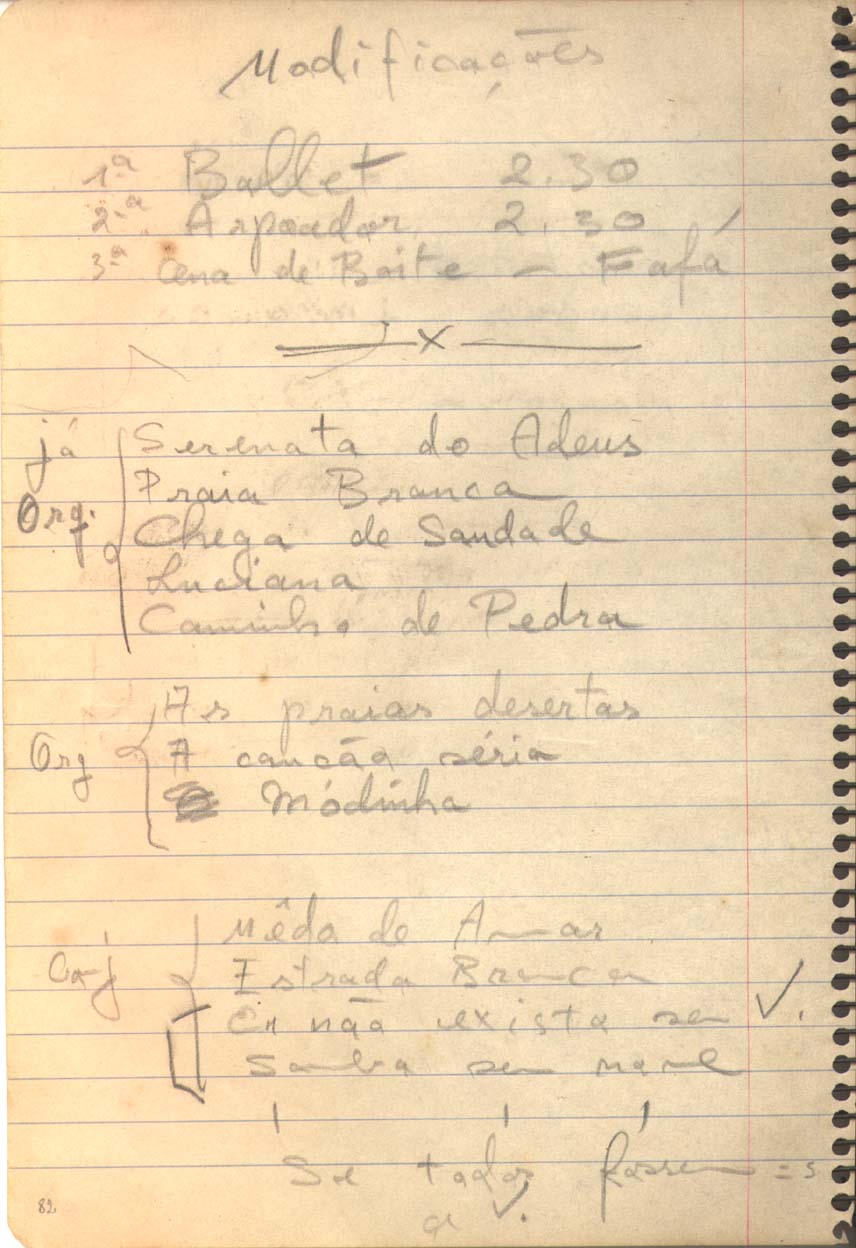 Modificações
1ª Ballet 2.30
2ª Arpoador 2.30
3ª Cena de Boite - Fafá
x
já Org. { Serenata do Adeus
Praia Branca
Chega de Saudade
Luciana
Caminho de Pedra
Org { As praias desertas
A canção séria
Módinha
Mêdo de Amar
Estrada Branca
Eu não existo sem v.
Samba sem nome
Se todos fossem = s
a v.
82